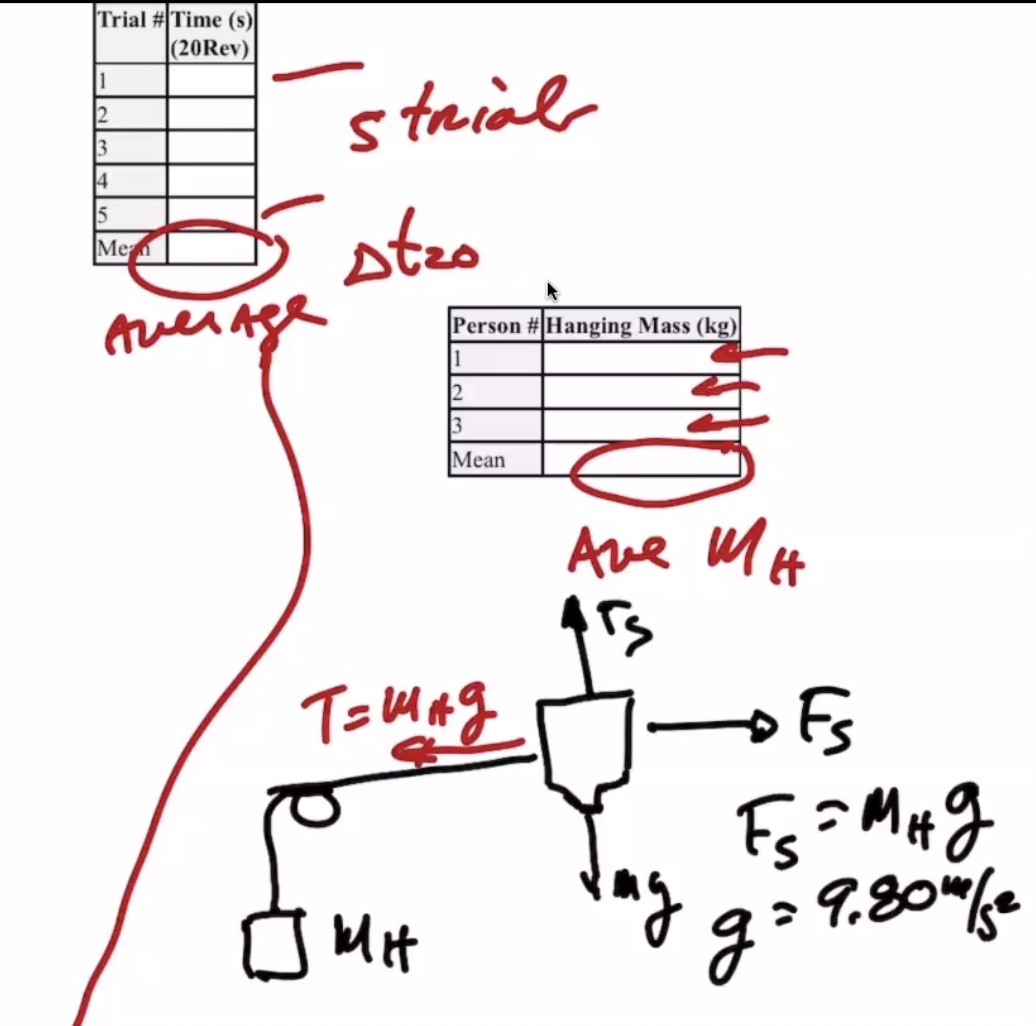 Trial # Time (s)
(20Rev)
1
2
3
4
5
Mean
5 trials
Δt20
Average
Person # Hanging Mass (kg)
1
2
3
Mean
Ave MH
TS
T=MHg
FS
FS = MHg
mg
g = 9.80 m/s²
MH